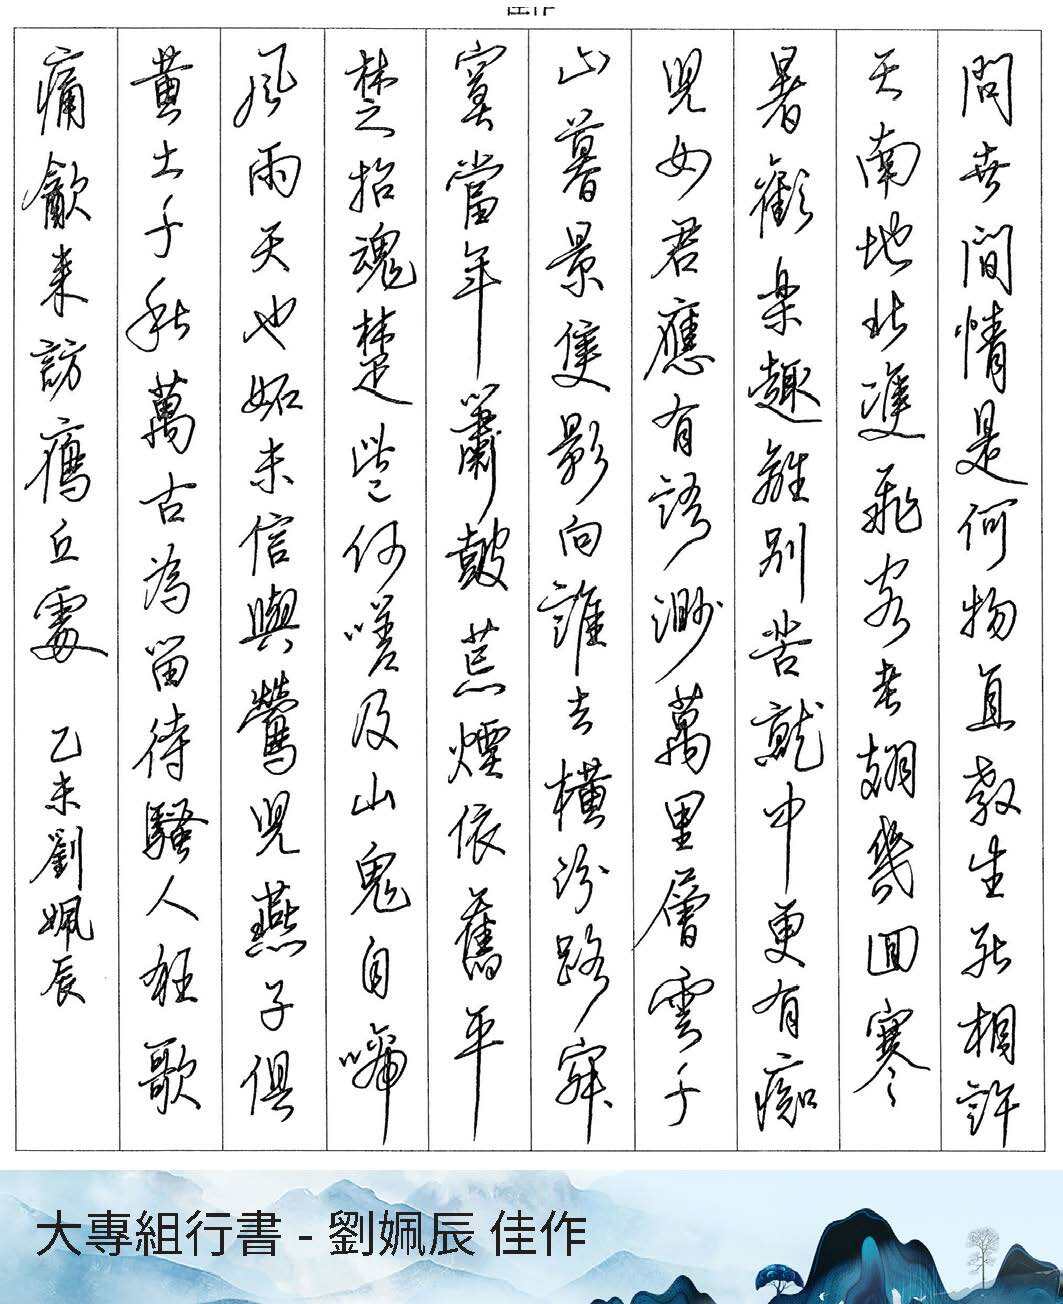 佳作
問世間情是何物直教生死相許
天南地北雙飛客老翅幾回寒
暑歡樂趣離別苦就中更有痴
兒女君應有語渺萬里層雲千
山暮景隻影向誰去橫汾路寂
寞當年簫鼓荒煙依舊平
楚招魂楚些何嗟及山鬼自啼
風雨天也妬未信與鶯兒燕子俱
黃土千秋萬古為留待騷人狂歌
痛飲來訪鴈丘處 乙未劉姵辰
大專組行書 - 劉姵辰 佳作